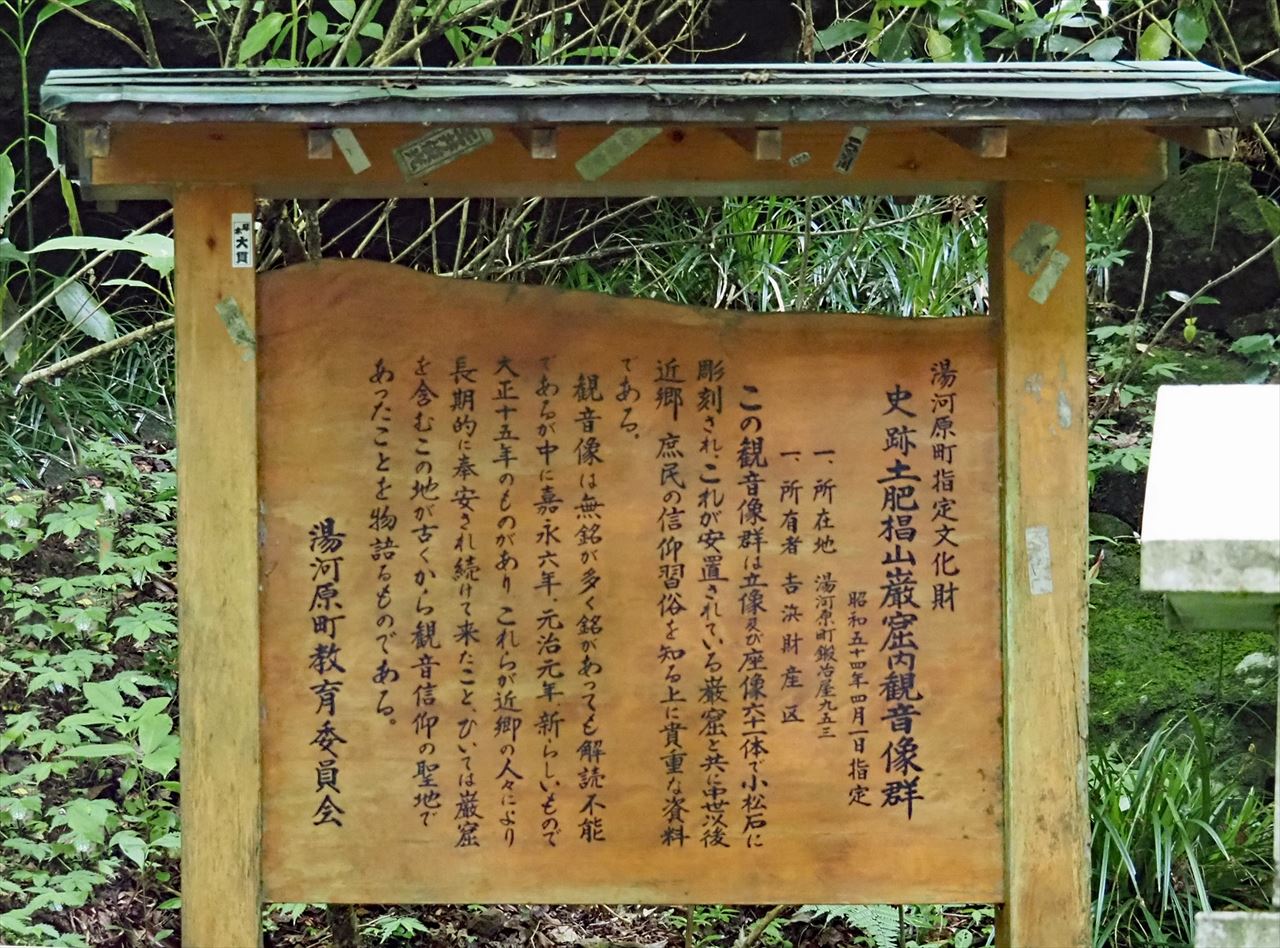 湯河原町指定文化財
史跡土肥椙山巌窟内観音像群
昭和五十四年四月一日指定
一、所在地 湯河原町鍛冶屋九五三
一、所有者 吉浜財産区
この観音像群は立像及び座像六十一体で小松石に
彫刻され、これが安置されている巌窟と共に中世以後
近郷 庶民の信仰習俗を知る上に貴重な資料
である。
観音像は無銘が多く銘があっても解読不能
であるが中に嘉永六年、元治元年、新らしいもので
大正十五年のものがあり これらが近郷の人々により
長期的に奉安され続けて来たこと、ひいては巌窟
を含むこの地が古くから観音信仰の聖地で
あったことを物語るものである。
湯河原町教育委員会
大貫